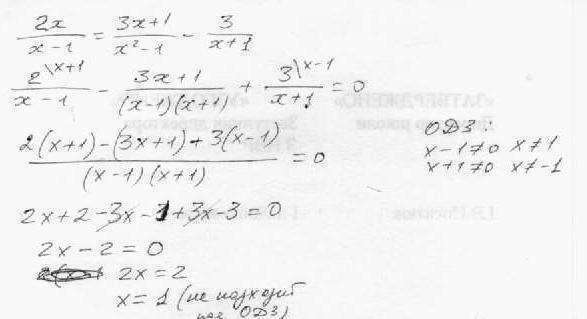 2x/(x-1) = (3x+1)/(x²-1) - 3/(x+1)
2\x+1/(x-1) - (3x+1)/((x-1)(x+1)) + 3\x-1/(x+1) = 0
(2(x+1)-(3x+1)+3(x-1))/((x-1)(x+1)) = 0
ОДЗ:
x-1≠0 x≠1
x+1≠0 x≠-1
2x+2-3x-1+3x-3=0
2x-2=0
2x=2
x=1 (не подходит
под ОДЗ)
«ЗАТВЕРДЖЕНО»